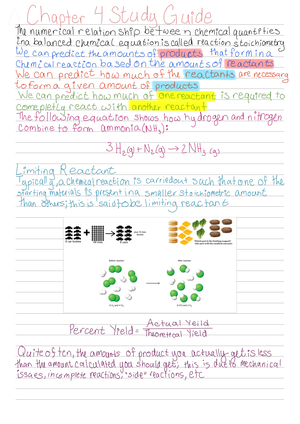 Chapter 4 Study Guide
The numerical relationship between chemical quantities
in a balanced chemical equation is called reaction stoichiometry
We can predict the amounts of products that form in a
chemical reaction based on the amounts of reactants
We can predict how much of the reactants are necessary
to form a given amount of products
We can predict how much of one reactant is required to
completely react with another reactant
The following equation shows how hydrogen and nitrogen
combine to form ammonia (NH₃):
3H₂(g) + N₂(g) → 2NH₃ (g)
Limiting Reactant
Typically, a chemical reaction is carried out such that one of the
starting materials is present in a smaller stoichiometric amount
than others; this is said to be limiting reactant
Percent Yield = Actual Yeild
Theoretical Yield
Quite often, the amounts of product you actually get is less
than the amount calculated you should get, this is due to mechanical
issues, incomplete reactions, "side" reactions, etc